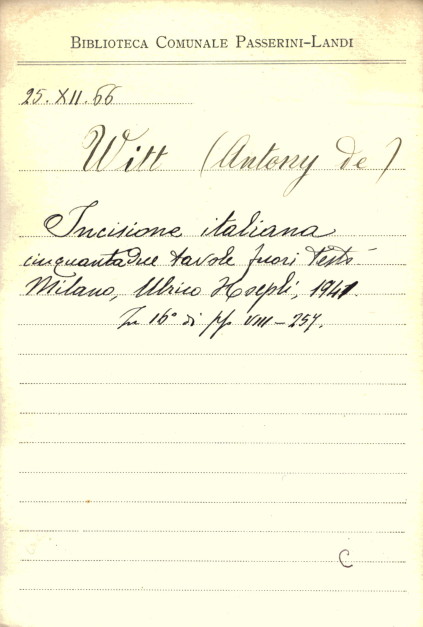 BIBLIOTECA COMUNALE PASSERINI-LANDI
25. XII. 66
Witt (Antony de)
Incisione italiana
cinquantadue tavole fuori testo
Milano, Ulrico Hoepli, 1941.
In 16° di pp VIII - 257.
C